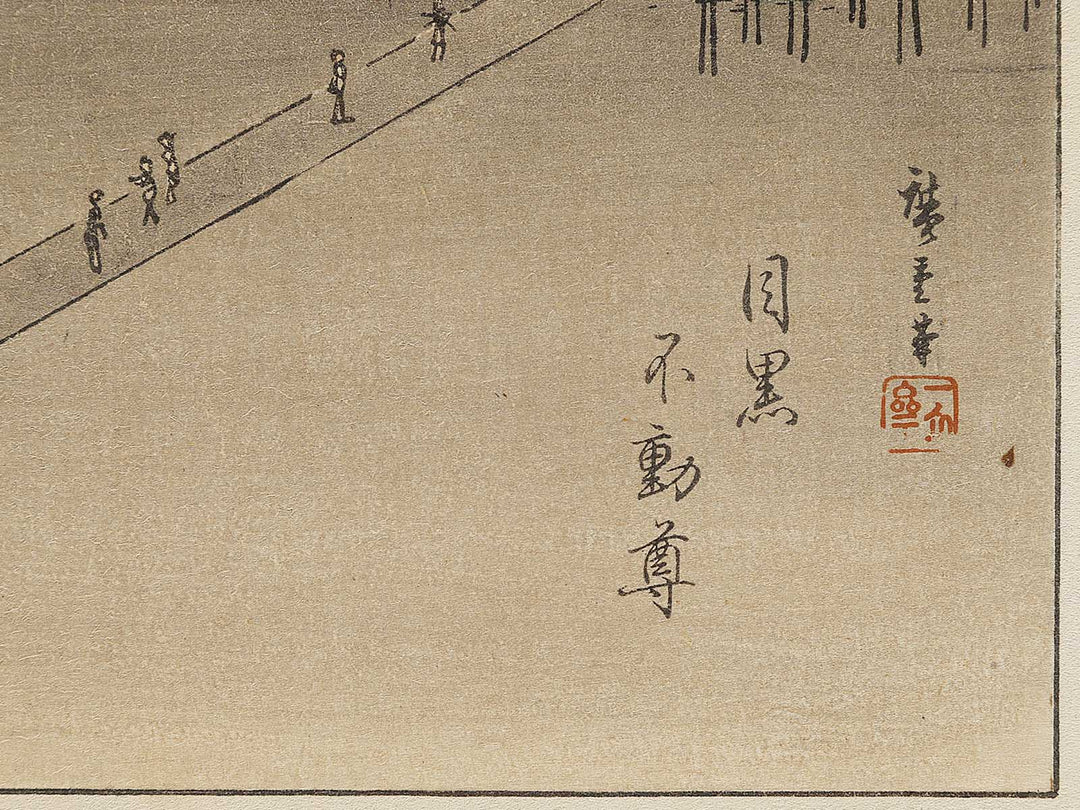 廣重筆
目黒
不動尊